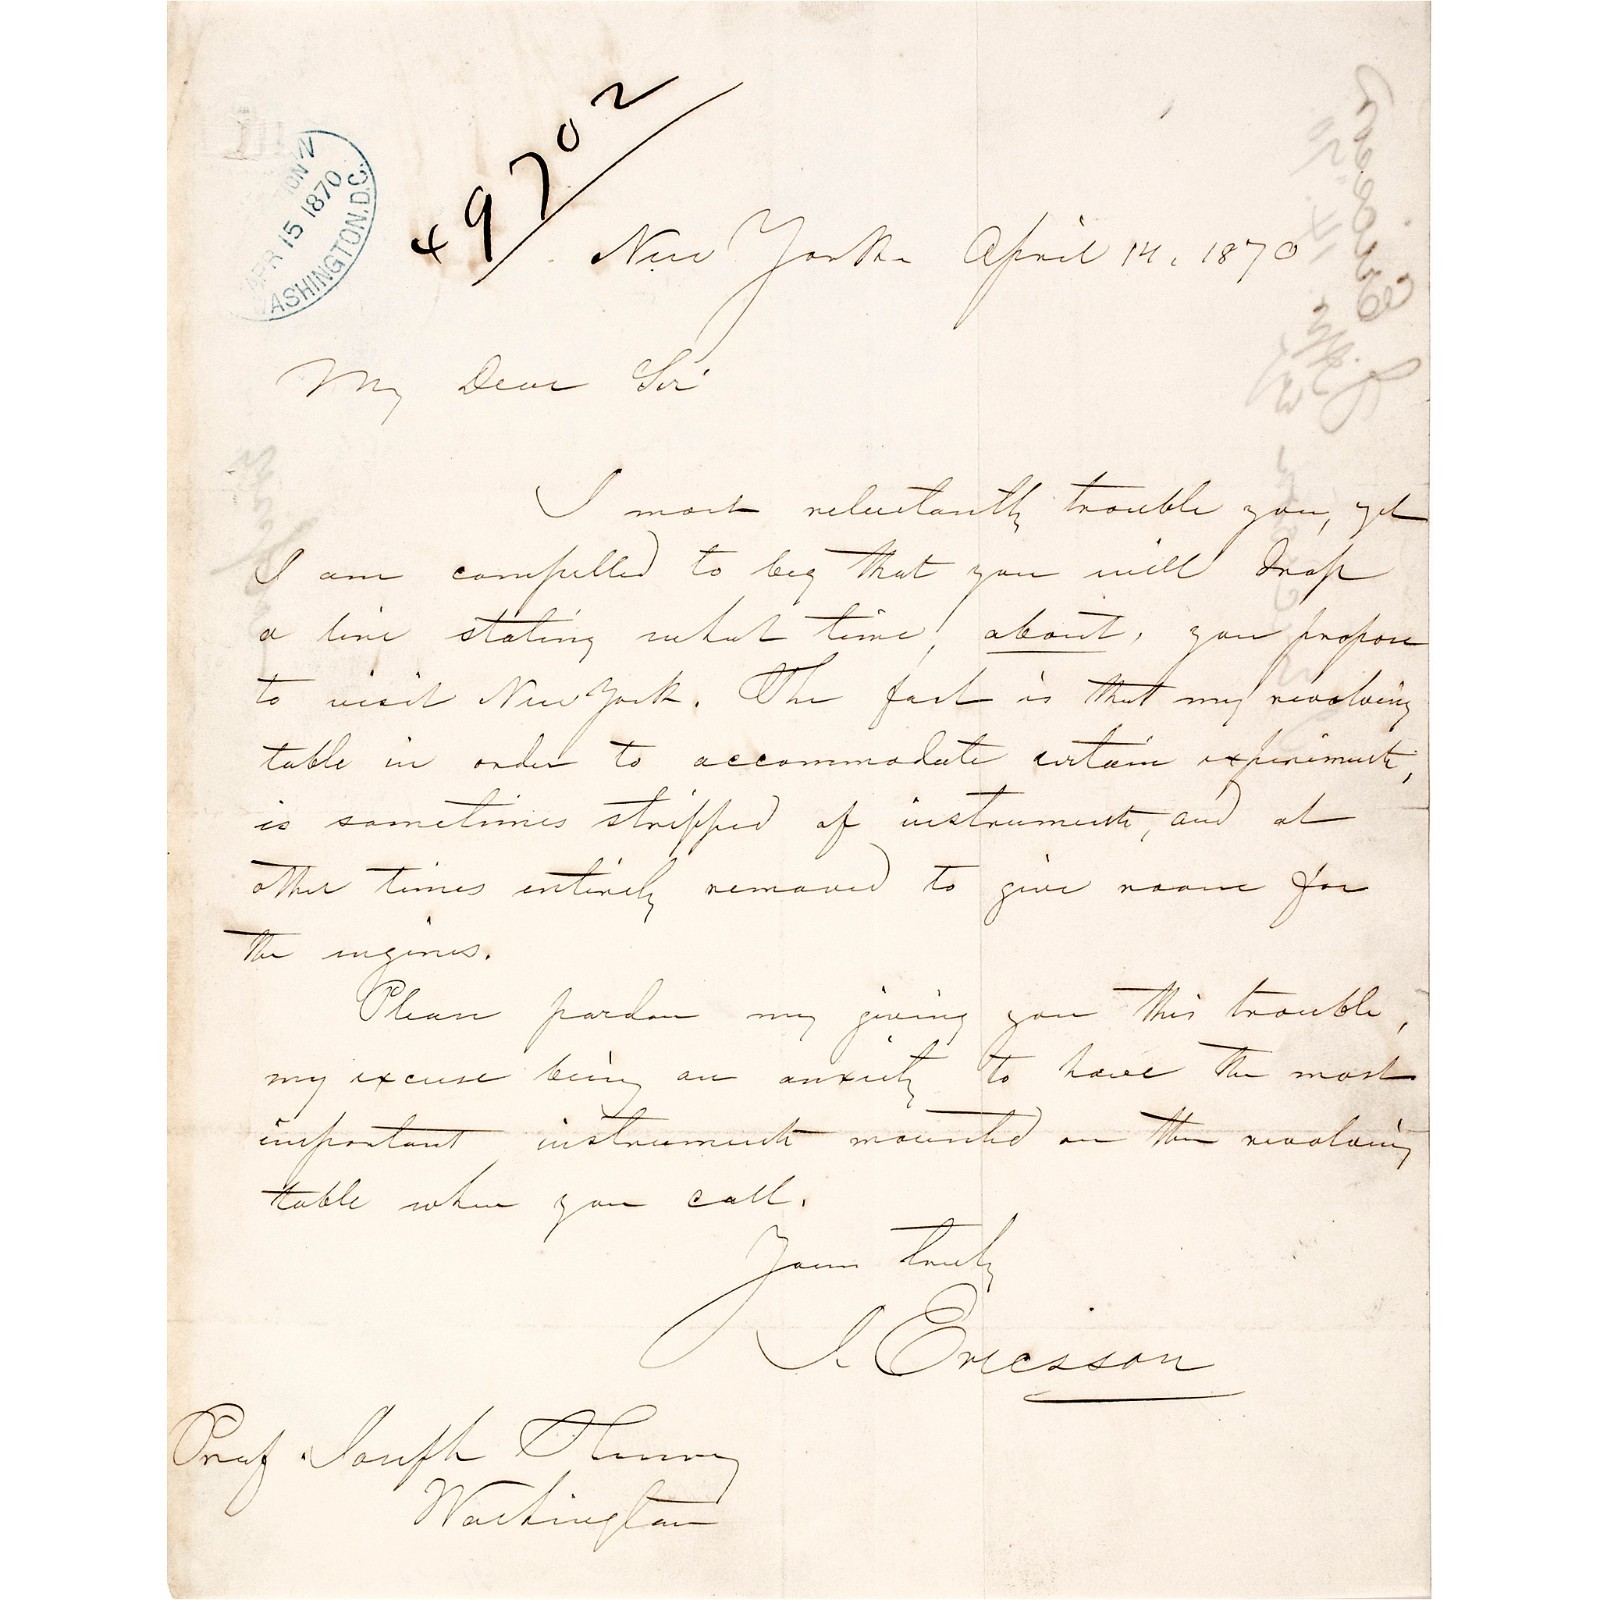 49702
APR 15 1870
WASHINGTON, D.C.
New York April 14, 1870
My Dear Sir
I most reluctantly trouble you, yet
I am compelled to beg that you will drop
a line stating what time, about, you propose
to visit New York. The fact is that my revolving
table in order to accommodate certain experiments,
is sometimes stripped of instruments, and at
other times entirely removed to give room for
the engines.
Please pardon my giving you this trouble,
my excuse being an anxiety to have the most
important instruments mounted on the revolving
table when you call.
Yours truly
J. Ericsson
Prof. Joseph Henry
Washington